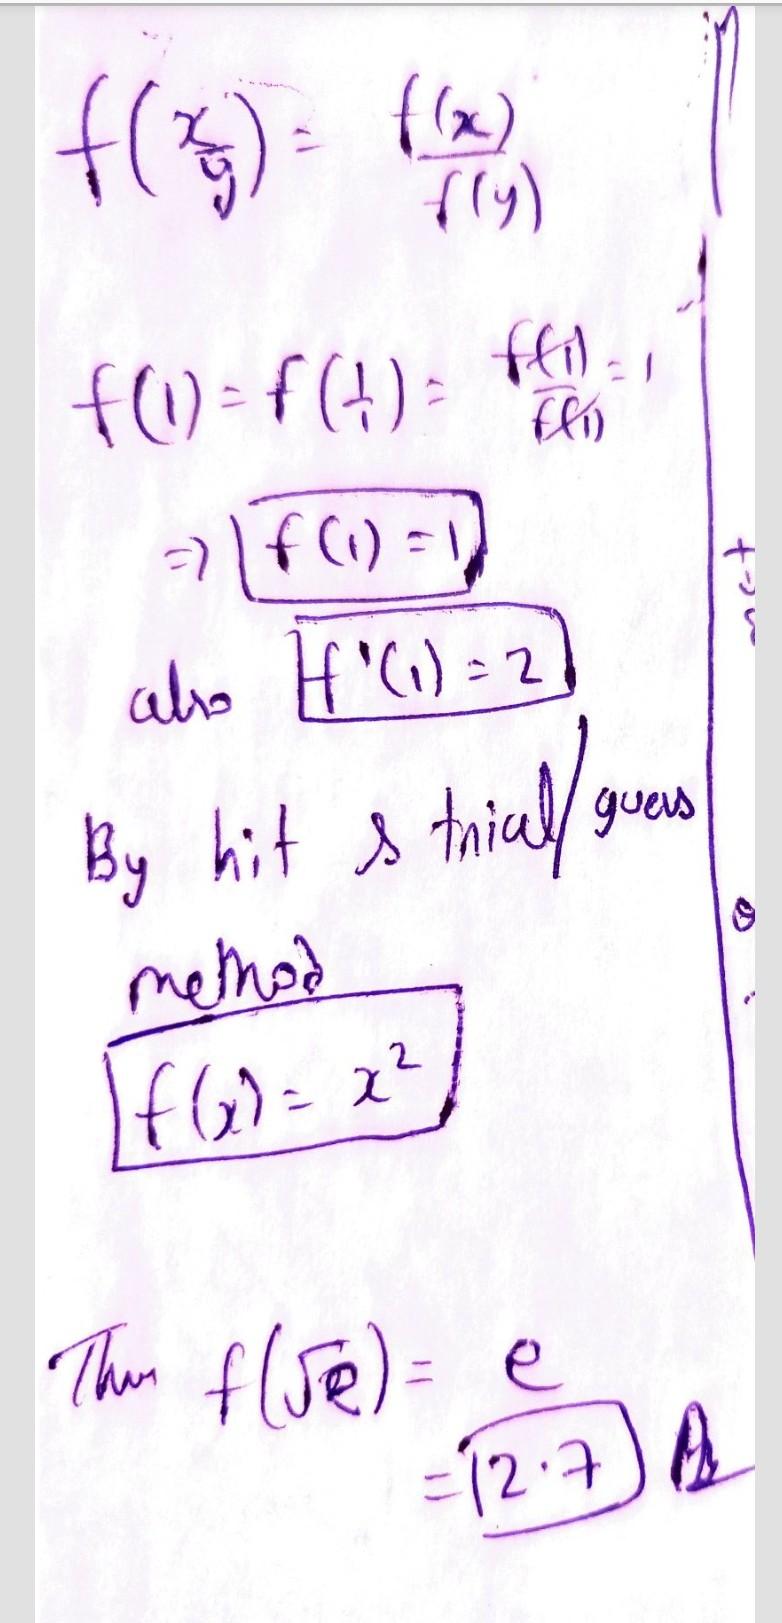 f(x/y) = f(x)/f(y)
f(1) = f(1/1) = f(1)/f(1) = 1
⇒ f(1) = 1
also f'(1) = 2
By hit & trial/guess
method
f(x) = x²
Thus f(√e) = e
= 2.7 A